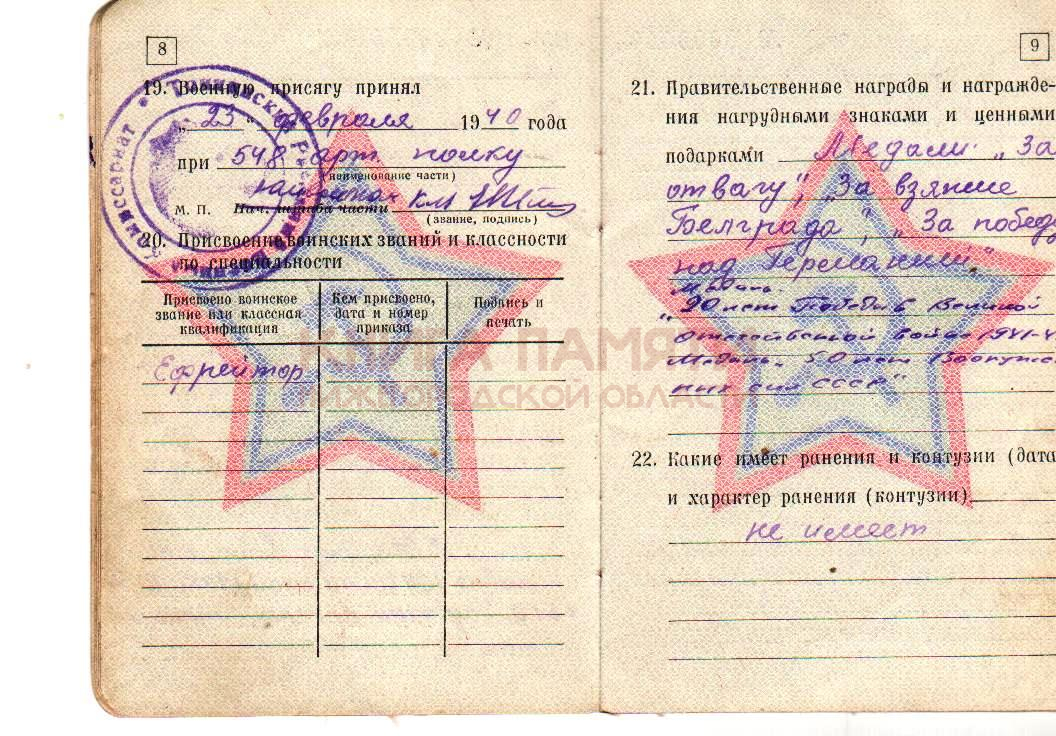 8
19. Военную присягу принял
„ 23 “ февраля 1940 года
при 548 арт. полку
(наименование части)
М. П. Нач. штаба части
(звание, подпись)
20. Присвоение воинских званий и классности
по специальности
Присвоено воинское звание или классная квалификация
Кем присвоено, дата и номер приказа
Подпись и печать
Ефрейтор
КНИГА ПАМЯТИ
НИЖЕГОРОДСКОЙ ОБЛАСТИ
9
21. Правительственные награды и награжде-
ния нагрудными знаками и ценными
подарками Медали „За
отвагу", „За взятие
Белграда", „За победу
над Германией"
Медаль
„20 лет Победы в Великой
Отечественной войне 1941-4
Медаль „50 лет Вооружен
ных сил СССР"
22. Какие имеет ранения и контузии (дата
и характер ранения (контузии)
не имеет